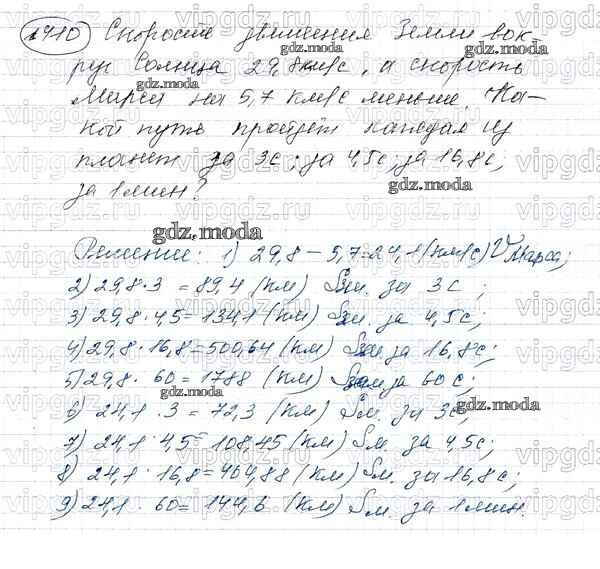 1410 Скорость движения Земли вок-
руг Солнца 29,8 км/с, а скорость
Марса на 5,7 км/с меньше. Ка-
кой путь пройдёт каждая из
планет за 3с; за 4,5с; за 16,8с;
за 1 мин?
Решение: 1) 29,8 - 5,7 = 24,1 (км/с) V Марса;
2) 29,8 · 3 = 89,4 (км) Sзм. за 3с;
3) 29,8 · 4,5 = 134,1 (км) Sзм. за 4,5с;
4) 29,8 · 16,8 = 500,64 (км) Sзм. за 16,8с;
5) 29,8 · 60 = 1788 (км) Sзем. за 60с;
6) 24,1 · 3 = 72,3 (км) Sм. за 3с;
7) 24,1 · 4,5 = 108,45 (км) Sм. за 4,5с;
8) 24,1 · 16,8 = 404,88 (км) Sм. за 16,8с;
9) 24,1 · 60 = 144,6 (км) Sм. за 1 мин.
gdz.moda
gdz.moda
gdz.moda
gdz.moda
gdz.moda
gdz.moda
gdz.moda
gdz.moda
vipgdz.ru